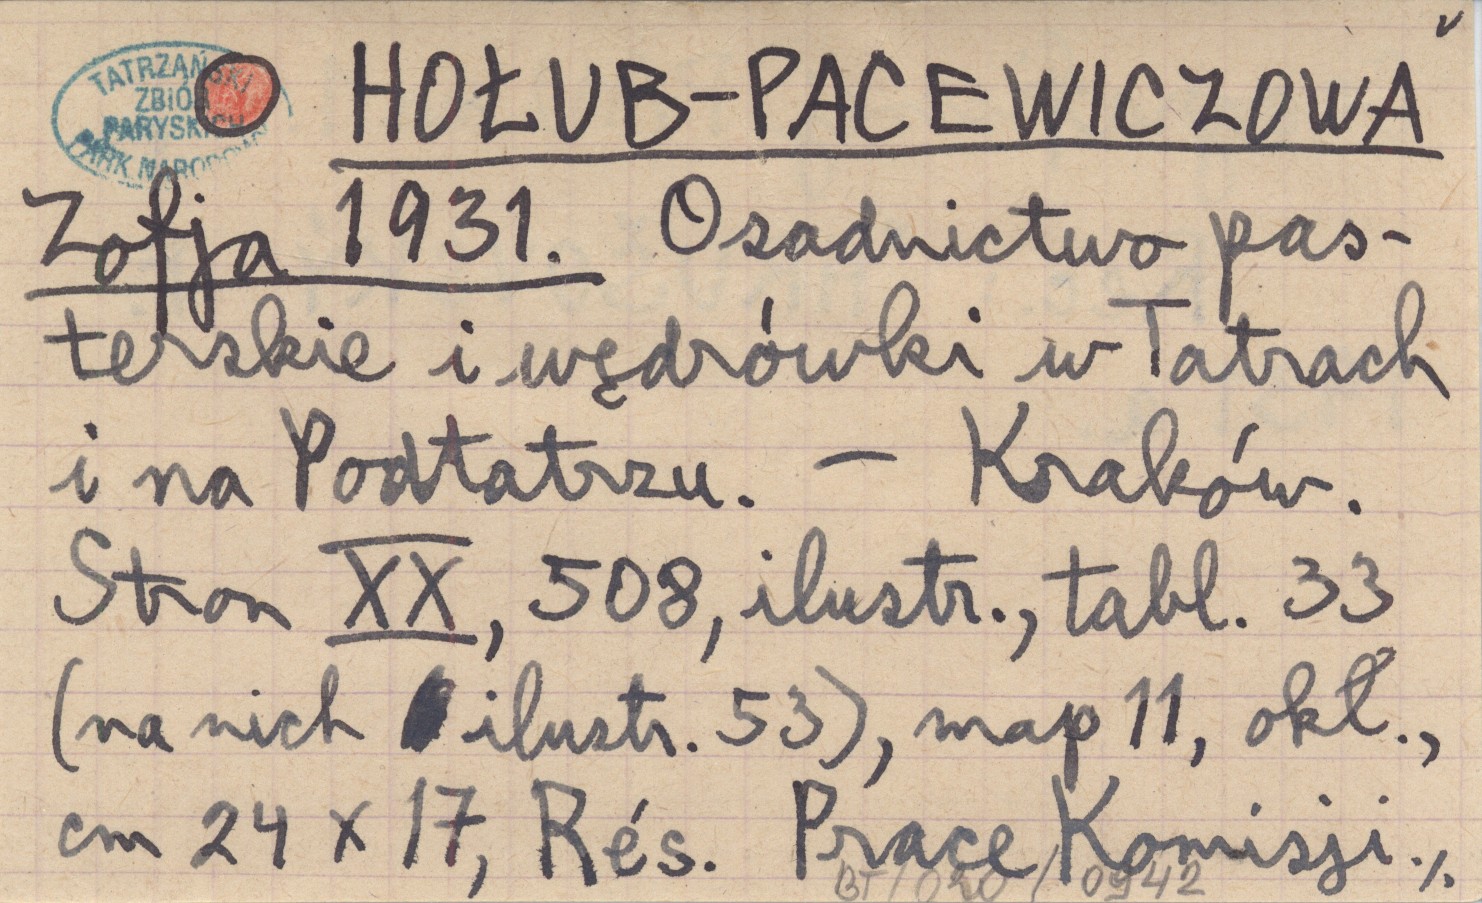 TATRZAŃSKI
ZBIÓR
PARYSKICH
PARK NARODOWY
HOŁUB-PACEWICZOWA
Zofja 1931. Osadnictwo pas-
terskie i wędrówki w Tatrach
i na Podtatrzu. — Kraków.
Stron XX, 508, ilustr., tabl. 33
(na nich ilustr. 53), map 11, okł.,
cm 24 x 17, Rés. Prace Komisji ./.
BT/020/0942